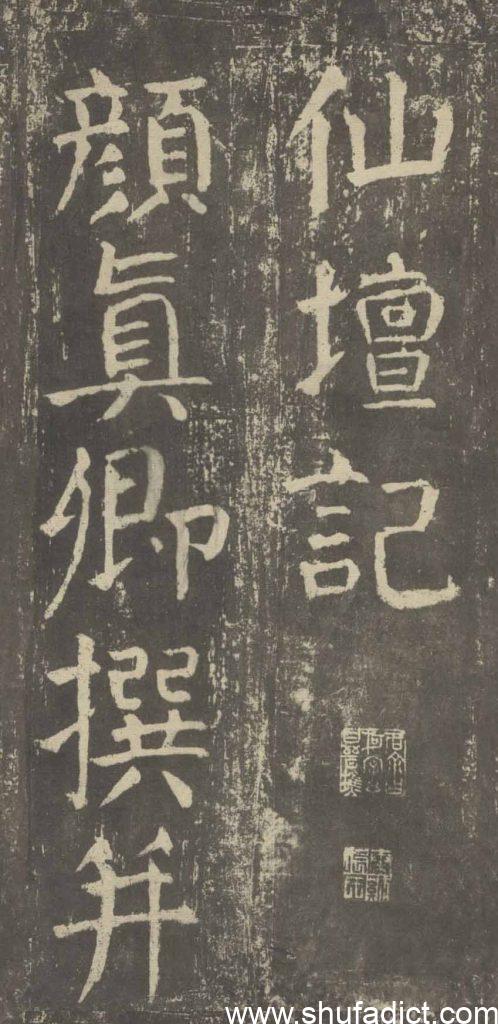 仙壇記
顏真卿撰并
www.shufadict.com